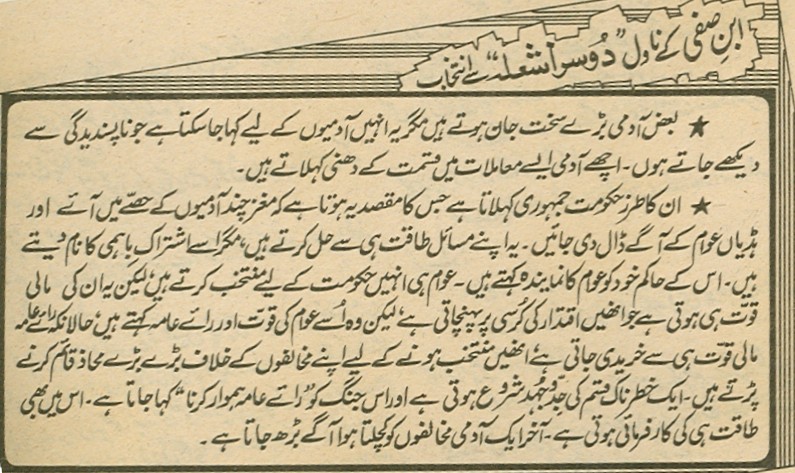 ابنِ صفی کے ناول ”دُوسرا شعلہ“ سے انتخاب
★ بعض آدمی بڑے سخت جان ہوتے ہیں مگر یہ انہیں آدمیوں کے لیے کہا جا سکتا ہے جو ناپسندیدگی سے
دیکھے جاتے ہوں۔ اچھے آدمی ایسے معاملات میں قسمت کے دھنی کہلاتے ہیں۔
★ ان کا طرزِ حکومت جمہوری کہلاتا ہے جس کا مقصد یہ ہوتا ہے کہ مغز چند آدمیوں کے حصّے میں آئے اور
ہڈیاں عوام کے آگے ڈال دی جائیں۔ یہ اپنے مسائل طاقت ہی سے حل کرتے ہیں، مگر اسے اشتراک باہمی کا نام دیتے
ہیں۔ اس کے حاکم خود کو عوام کا نمایندہ کہتے ہیں۔ عوام ہی انہیں حکومت کے لیے منتخب کرتے ہیں لیکن یہ ان کی مالی
قوت ہی ہوتی ہے جو انھیں اقتدار کی کُرسی پر پہنچاتی ہے، لیکن وہ اُسے عوام کی قوّت اور رائے عامہ کہتے ہیں، حالانکہ رائے عامہ
مالی قوّت ہی سے خریدی جاتی ہے، انھیں منتخب ہونے کے لیے اپنے مخالفوں کے خلاف بڑے بڑے محاذ قائم کرنے
پڑتے ہیں۔ ایک خطرناک قسم کی جدّوجُہد شروع ہوتی ہے اور اس جنگ کو ”رائے عامہ ہموار کرنا“ کہا جاتا ہے۔ اس میں بھی
طاقت ہی کی کارفرمائی ہوتی ہے۔ آخر ایک آدمی مخالفوں کو کچلتا ہوا آگے بڑھ جاتا ہے۔